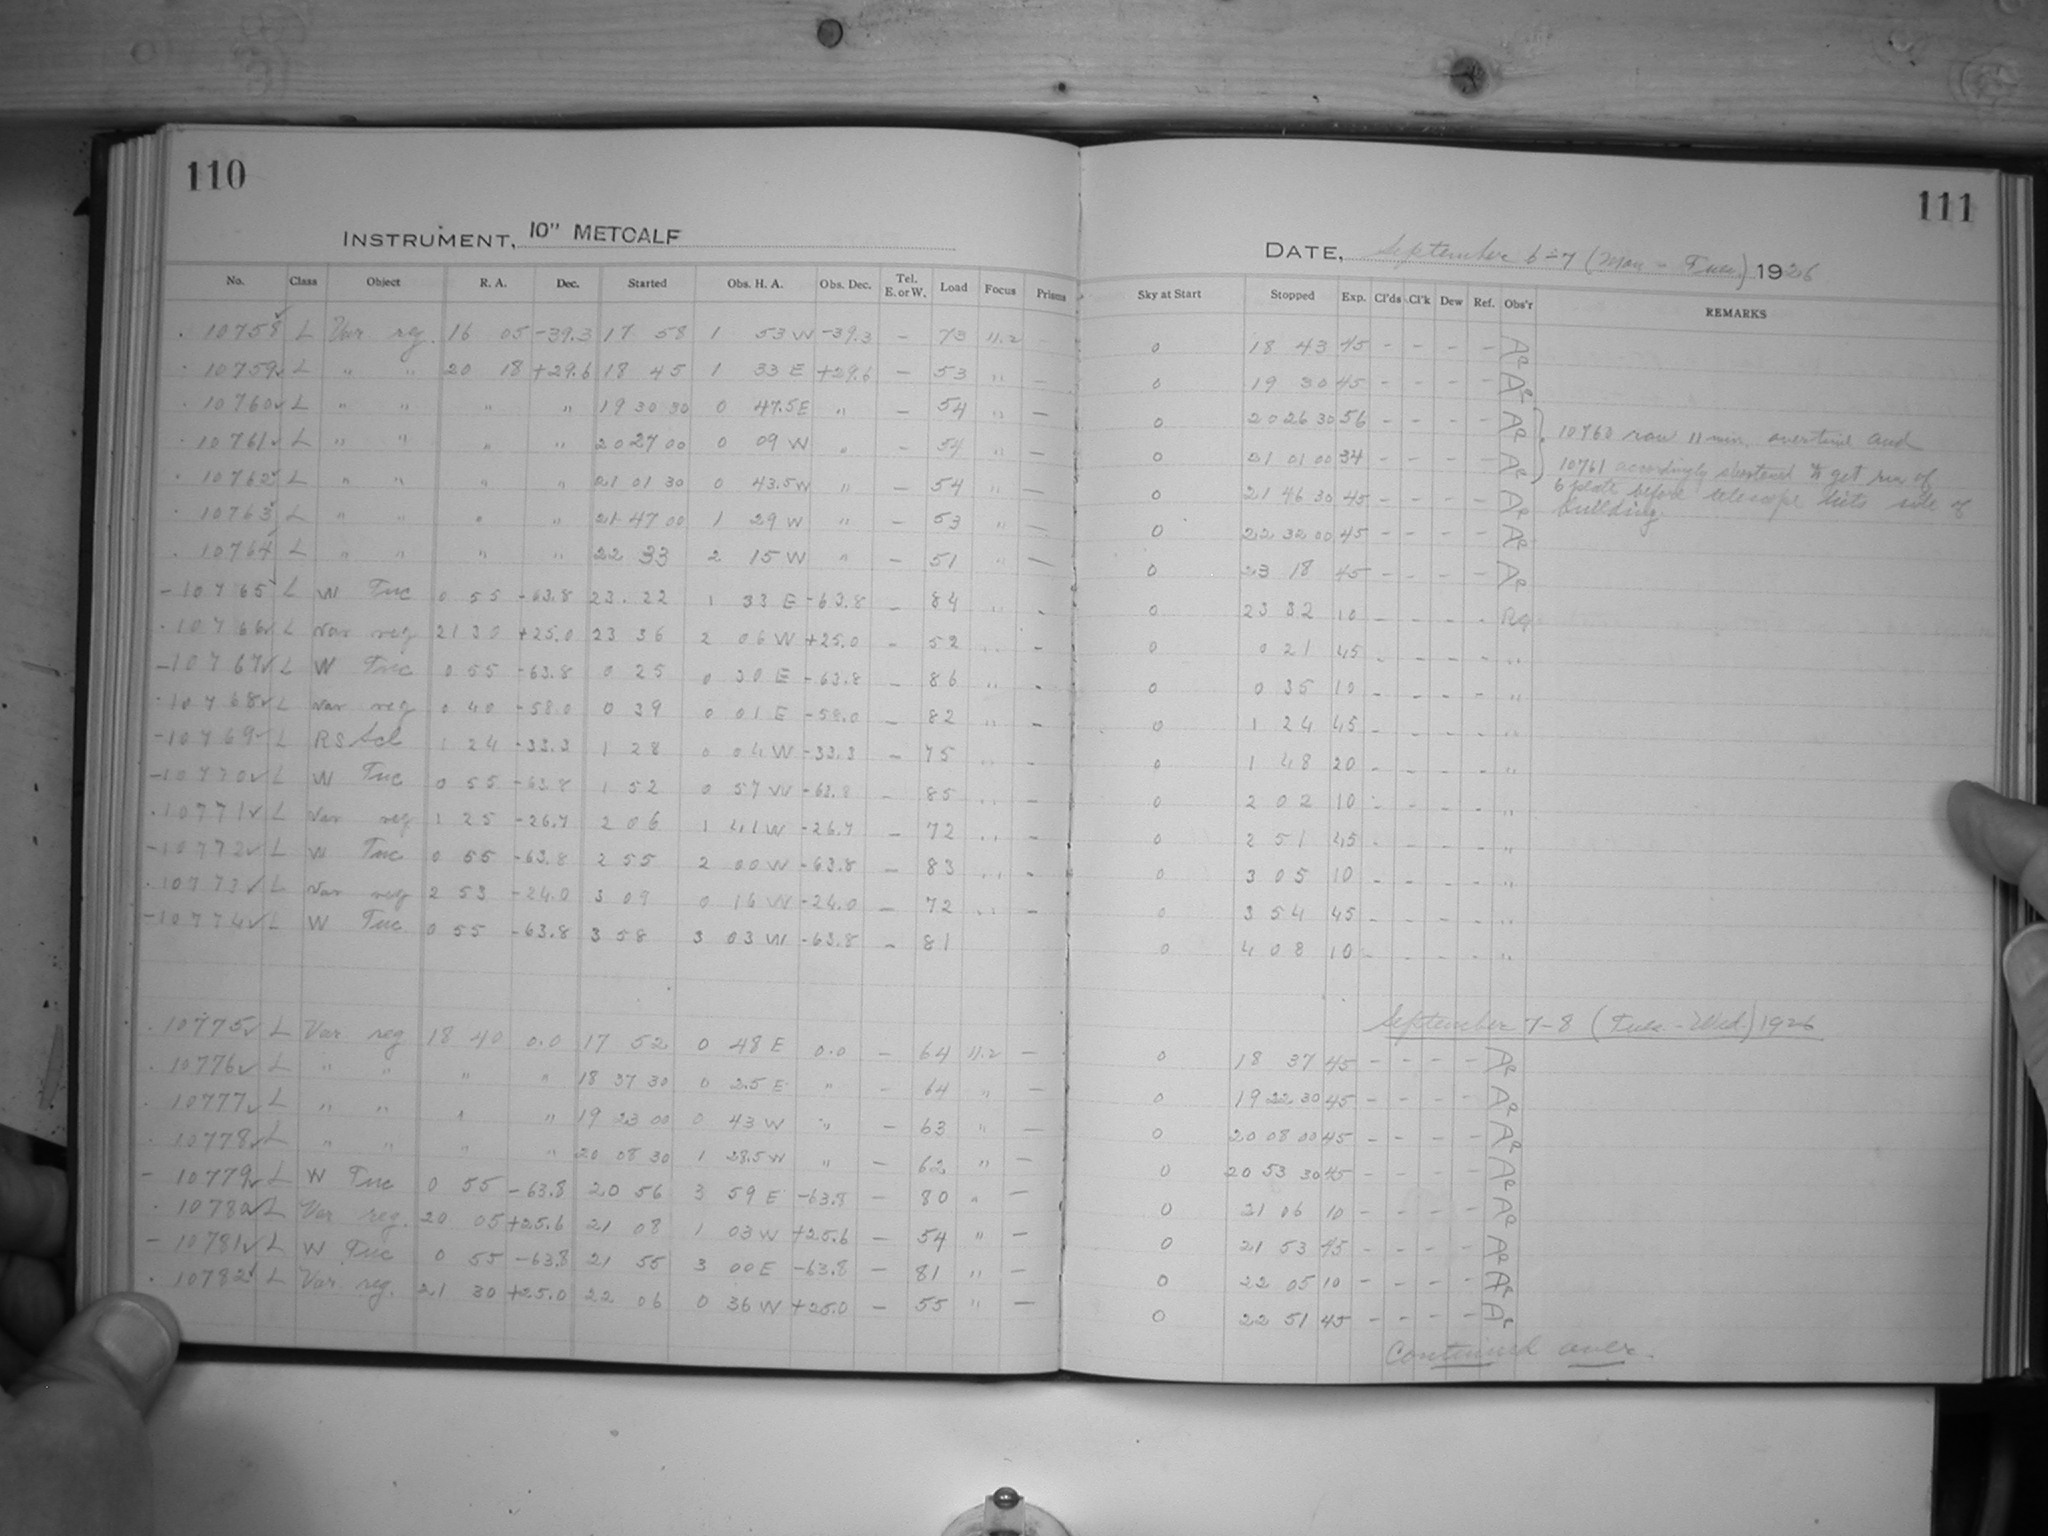 110
INSTRUMENT, 10" METCALF
No. Class Object R. A. Dec. Started Obs. H. A. Obs. Dec. Tel. E. or W. Load Focus Prisms
10758 L Var reg. 16 05 -39.3 17 58 1 53 W -39.3 - 73 11.2
10759 L " " 20 18 +29.6 18 45 1 33 E +29.6 - 53 " -
10760 L " " " " 19 30 30 0 47.5 E " - 54 " -
10761 L " " " " 20 27 00 0 09 W " - 54 " -
10762 L " " " " 21 01 30 0 43.5 W " - 54 " -
10763 L " " " " 21 47 00 1 29 W " - 53 " -
10764 L " " " " 22 33 2 15 W " - 51 " -
- 10765 L W Tuc 0 55 -63.8 23.22 1 33 E -63.8 - 84 " -
10766 L Var reg 21 30 +25.0 23 36 2 06 W +25.0 - 52 " -
- 10767 L W Tuc 0 55 -63.8 0 25 0 30 E -63.8 - 86 " -
10768 L Var reg 0 40 -58.0 0 39 0 01 E -58.0 - 82 " -
- 10769 L RS Scl 1 24 -33.3 1 28 0 04 W -33.3 - 75 " -
- 10770 L W Tuc 0 55 -63.8 1 52 0 57 W -63.8 - 85 " -
10771 L Var reg 1 25 -26.7 2 06 1 41 W -26.7 - 72 " -
- 10772 L W Tuc 0 55 -63.8 2 55 2 00 W -63.8 - 83 " -
10773 L Var reg 2 53 -24.0 3 09 0 16 W -24.0 - 72 " -
- 10774 L W Tuc 0 55 -63.8 3 58 3 03 W -63.8 - 81
10775 L Var. reg 18 40 0.0 17 52 0 48 E 0.0 - 64 11.2 -
10776 L " " " " 18 37 30 0 2.5 E " - 64 " -
10777 L " " " " 19 23 00 0 43 W " - 63 " -
10778 L " " " " 20 08 30 1 28.5 W " - 62 " -
- 10779 L W Tuc 0 55 -63.8 20 56 3 59 E -63.8 - 80 " -
10780 L Var reg. 20 05 +25.6 21 08 1 03 W +25.6 - 54 " -
- 10781 L W Tuc 0 55 -63.8 21 55 3 00 E -63.8 - 81 " -
10782 L Var. reg. 21 30 +25.0 22 06 0 36 W +25.0 - 55 " -
111
DATE, September 6-7 (Mon - Tues.) 1926
Sky at Start Stopped Exp. Cl'ds Cl'k Dew Ref. Obs'r REMARKS
0 18 43 45 - - - - AP
0 19 30 45 - - - - AP
0 20 26 30 56 - - - - AP
10760 ran 11 min. overtime and
0 21 01 00 34 - - - - AP
10761 accordingly shortened to get run of
6 plate before telescope hits side of
0 21 46 30 45 - - - - AP
building.
0 22 32 00 45 - - - - AP
0 23 18 45 - - - - AP
0 23 32 10 - - - -
0 0 21 45 - - - - "
0 0 35 10 - - - - "
0 1 24 45 - - - - "
0 1 48 20 - - - - "
0 2 02 10 - - - - "
0 2 51 45 - - - - "
0 3 05 10 - - - - "
0 3 54 45 - - - - "
0 4 08 10 - - - - "
September 7-8 (Tues - Wed.) 1926
0 18 37 45 - - - - AP
0 19 22 30 45 - - - - AP
0 20 08 00 45 - - - - AP
0 20 53 30 45 - - - - AP
0 21 06 10 - - - - AP
0 21 53 45 - - - - AP
0 22 05 10 - - - - AP
0 22 51 45 - - - - AP
Continued over.